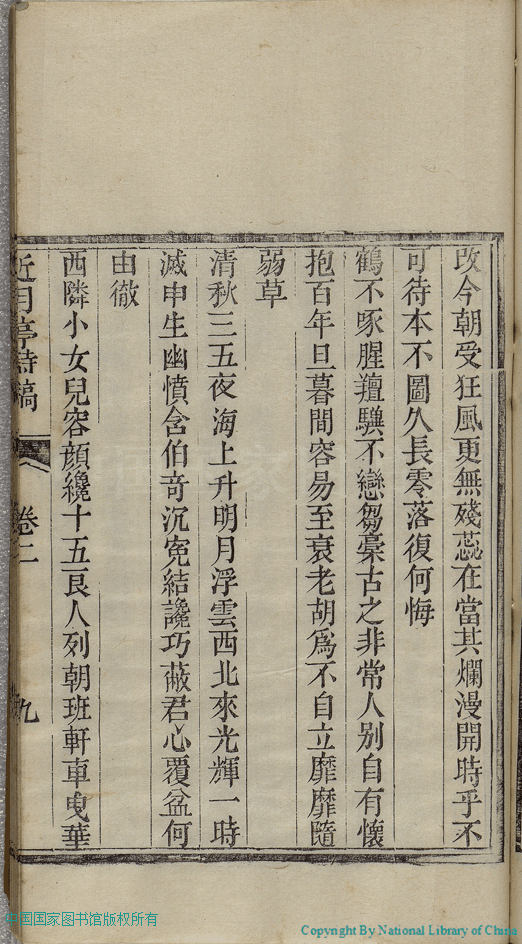 改今朝受狂風更無殘蕊在當其爛漫開時乎不
可待本不圖久長零落復何悔
鶴不啄腥羶驥不戀芻稾古之非常人別自有懷
抱百年旦暮間容易至衰老胡爲不自立靡靡隨
弱草
清秋三五夜海上升明月浮雲西北來光輝一時
滅申生幽憤含伯奇沉寃結讒巧蔽君心覆盆何
由徹
西隣小女兒容顔纔十五良人列朝班軒車曳華
近月亭詩稿 卷二 九
中国国家图书馆版权所有
Copyright By National Library of China